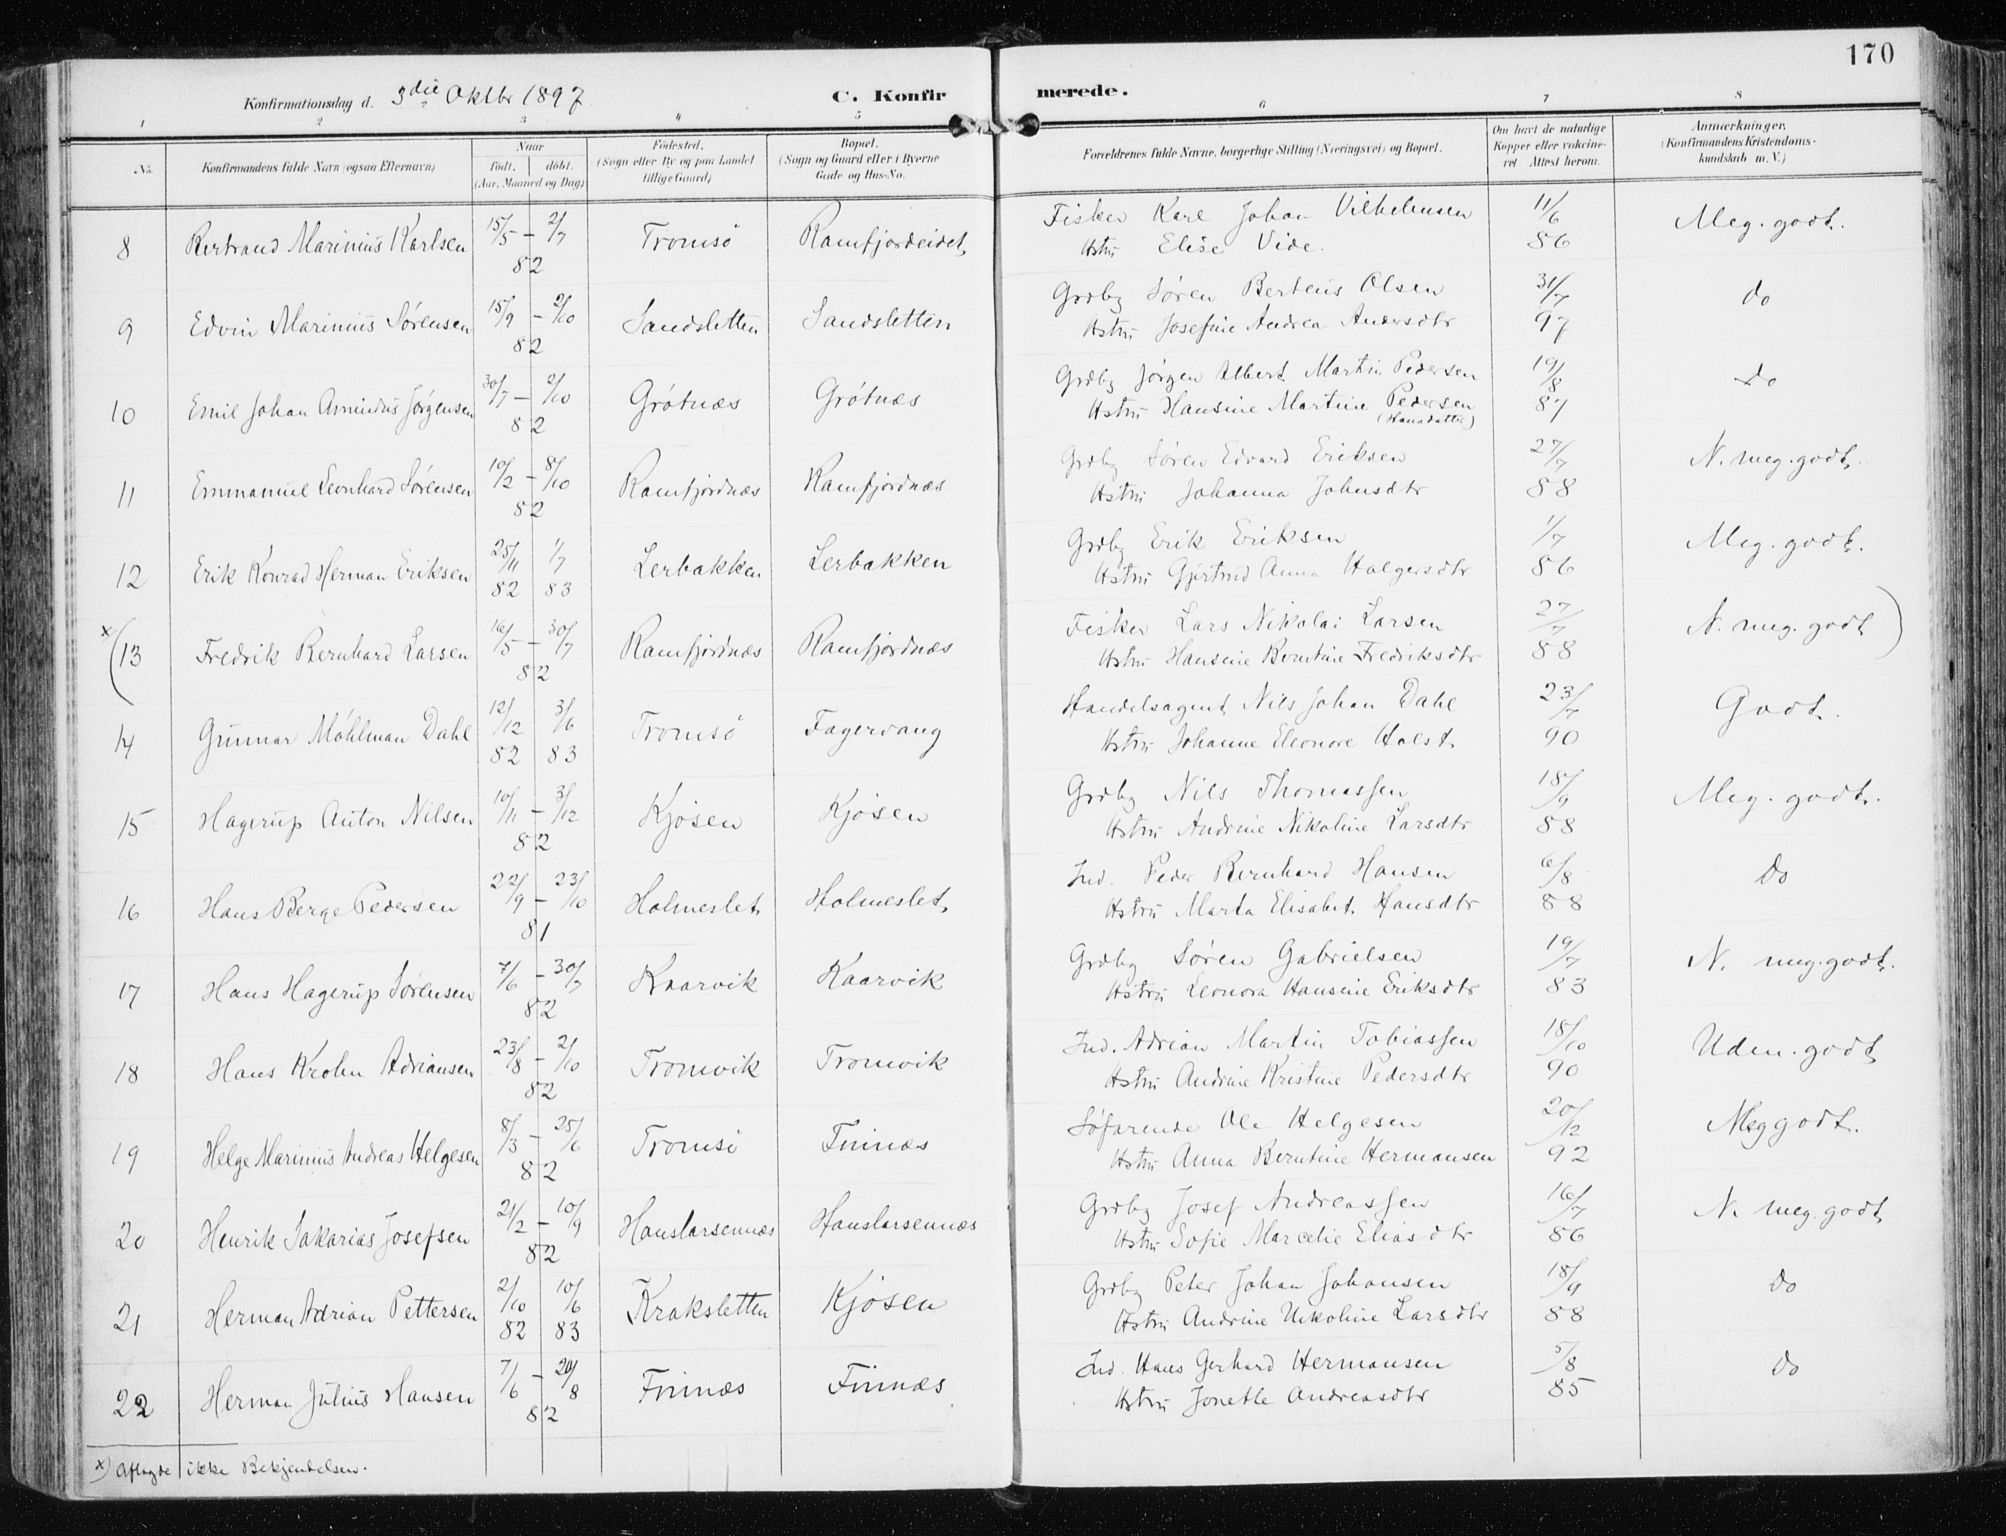 170
Konfirmationsdag d. 3die Oktbr 1897
C. Konfirmerede.
1 2 3 4 5 6 7 8
No.
Konfirmandens fulde Navn (ogsaa Efternavn)
Naar
født. døbt.
(Aar, Maaned og Dag)
Fødested.
(Sogn eller By og paa Landet
tillige Gaard)
Bopæl.
(Sogn og Gaard eller i Byerne
Gade og Hus-No.
Forældrenes fulde Navne, borgerlige Stilling (Næringsvei) og Bopæl.
Om havt de naturlige
Kopper eller vakcineret. Attest herom.
Anmærkninger.
(Konfirmandens Kristendomskundskab m. V.)
8 Bertrand Marinius Karlsen 15/5 – 2/7 82 Tromsö Ramfjordeidet Fisker Karl Johan Vilhelmsen 11/6 86 Meg. godt.
Hstru Elise Vide.
9 Edvin Marinius Sørensen 15/9 – 2/10 82 Sandsletten Sandsletten Grdbg Søren Berteus Olsen 31/7 97 do
Hstru Josefine Andrea Andersdtr
10 Emil Johan Amindus Jørgensen 30/7 – 2/10 82 Grötnæs Grötnæs Grdbg Jørgen Albert Martin Pedersen 19/8 87 do
Hstru Hansine Martine Pedersen
(Hansdatter)
11 Emmanuel Leonhard Sørensen 10/2 – 8/10 82 Ramfjordnæs Ramfjordnæs Grdbg Søren Edvard Eriksen 27/7 88 N. meg. godt.
Hstru Johanna Johnsdtr
12 Erik Konrad Herman Eriksen 25/11 82 1/7 83 Lerbakken Lerbakken Grdbg Erik Eriksen 1/7 86 Meg. godt.
Hstru Gjertrud Anna Holgersdtr
x (13 Fredrik Bernhard Larsen 16/5 – 30/7 82 Ramfjordnæs Ramfjordnæs Fisker Lars Nikolai Larsen 27/7 88 N. meg. godt)
Hstru Hansine Berntine Fredriksdtr
14 Gunnar Møhlman Dahl 12/12 82 3/6 83 Tromsö Fagervang Handelsagent Nils Johan Dahl 23/7 90 Godt.
Hstru Johanne Eleonore Holst.
15 Hagerup Anton Nilsen 10/11 – 3/12 82 Kjösen Kjösen Grdbg Nils Thomassen 18/9 88 Meg. godt.
Hstru Andrine Nikoline Larsdtr
16 Hans Berge Pedersen 22/9 – 23/10 81 Holmeslet Holmeslet Ind. Peder Bernhard Hansen 6/8 88 do
Hstru Marta Elisabet Hansdtr
17 Hans Hagerup Sørensen 7/6 – 30/7 82 Kaarvik Kaarvik Grdbg Søren Gabrielsen 19/7 83 N. meg. godt.
Hstru Leonora Hansine Eriksdtr
18 Hans Krohn Adriansen 23/8 – 2/10 82 Tromvik Tromvik Ind. Adrian Martin Tobiassen 18/10 90 Uden. godt
Hstru Andrine Kristine Pedersdtr
19 Helge Marinius Andreas Helgesen 8/3 – 25/6 82 Tromsö Finnæs Søfarende Ole Helgesen 20/12 92 Meg godt.
Hstru Anna Berntine Hermansen
20 Henrik Sakarias Josefsen 21/2 – 10/9 82 Hanslarsennæs Hanslarsennæs Grdbg Josef Andreassen 16/7 86 N. meg. godt
Hstru Sofie Marcelie Eliasdtr
21 Herman Adrian Pettersen 2/10 82 10/6 83 Kraksletten Kjösen Grdbg Peter Johan Johansen 18/9 88 do
Hstru Andrine Nikoline Larsdtr
22 Herman Julius Hansen 7/6 – 20/8 82 Finnæs Finnæs Ind. Hans Gerhard Hermansen 5/8 85 do
Hstru Jonette Andreasdtr
x) Aflagde ikke Bekjendelsen.